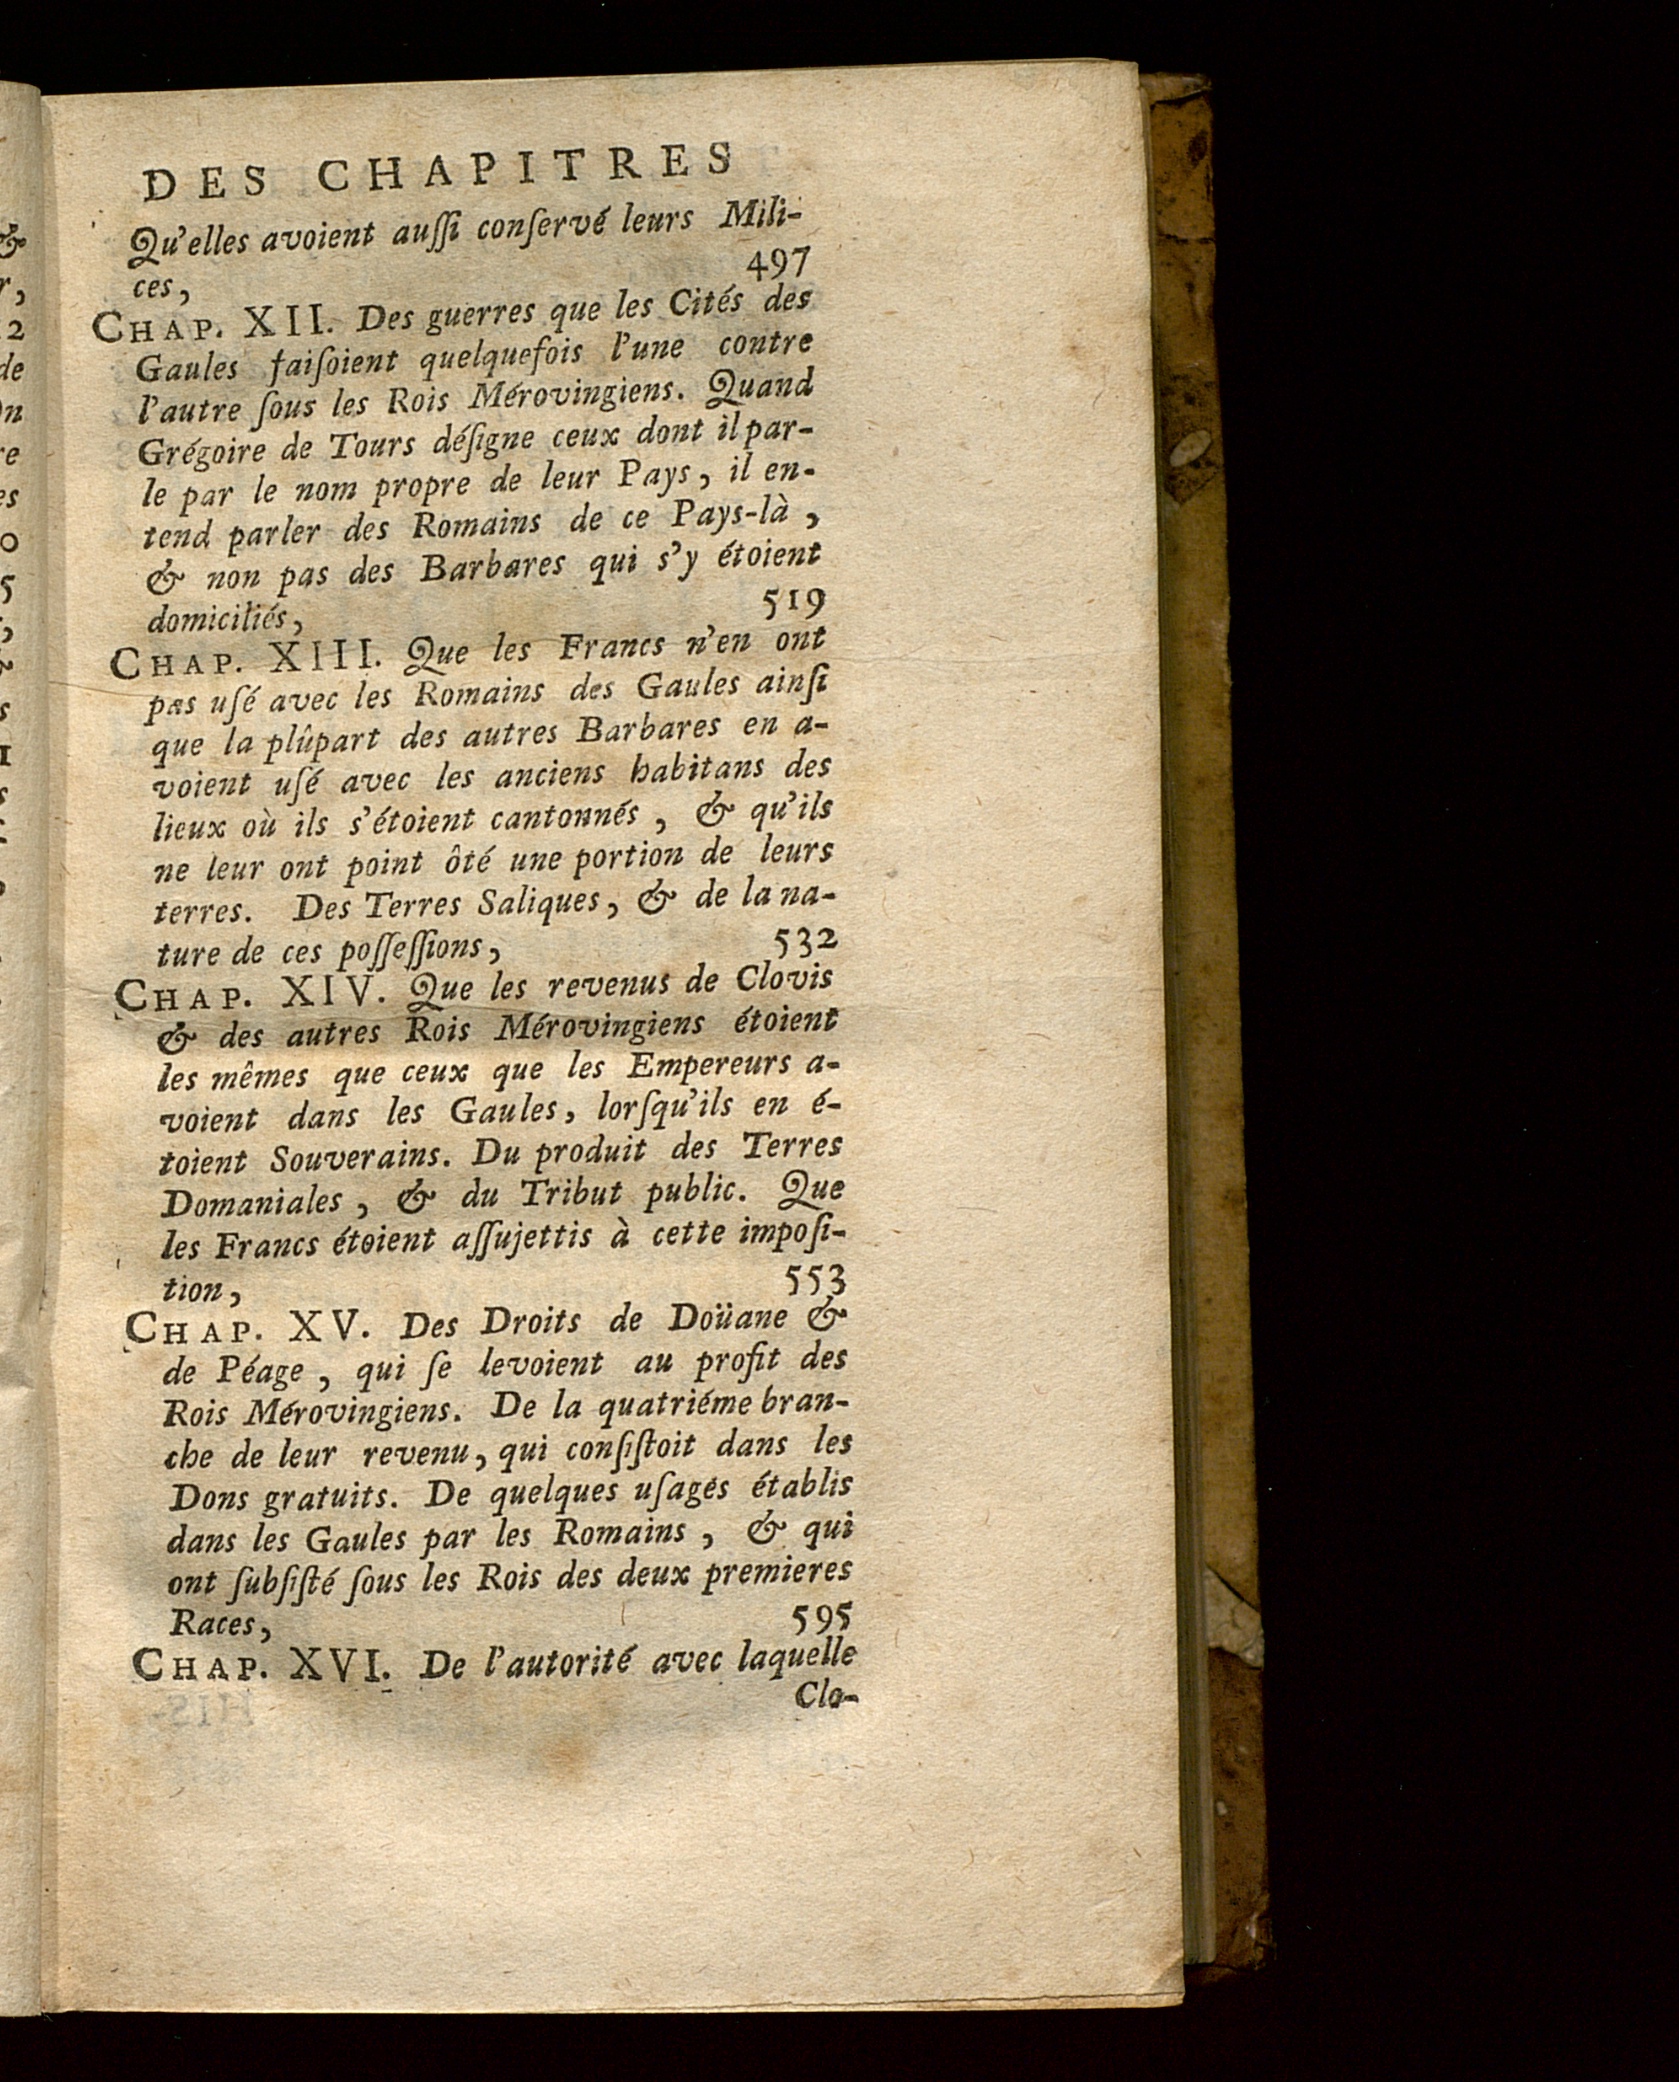 DES CHAPITRES
Qu'elles avoient auſſi conſervé leurs Mili-
ces, 497
CHAP. XII. Des guerres que les Cités des
Gaules faiſoient quelquefois l'une contre
l'autre ſous les Rois Mérovingiens. Quand
Grégoire de Tours déſigne ceux dont il par-
le par le nom propre de leur Pays, il en-
tend parler des Romains de ce Pays-là,
& non pas des Barbares qui s'y étoient
domiciliés, 519
CHAP. XIII. Que les Francs n'en ont
pas uſé avec les Romains des Gaules ainſi
que la plûpart des autres Barbares en a-
voient uſé avec les anciens habitans des
lieux où ils s'étoient cantonnés, & qu'ils
ne leur ont point ôté une portion de leurs
terres. Des Terres Saliques, & de la na-
ture de ces poſſeſſions, 532
CHAP. XIV. Que les revenus de Clovis
& des autres Rois Mérovingiens étoient
les mêmes que ceux que les Empereurs a-
voient dans les Gaules, lorſqu'ils en é-
toient Souverains. Du produit des Terres
Domaniales, & du Tribut public. Que
les Francs étoient aſſujettis à cette impoſi-
tion, 553
CHAP. XV. Des Droits de Doüane &
de Péage, qui ſe levoient au profit des
Rois Mérovingiens. De la quatriéme bran-
che de leur revenu, qui conſiſtoit dans les
Dons gratuits. De quelques uſages établis
dans les Gaules par les Romains, & qui
ont ſubſiſté ſous les Rois des deux premieres
Races, 595
CHAP. XVI. De l'autorité avec laquelle
Clo-